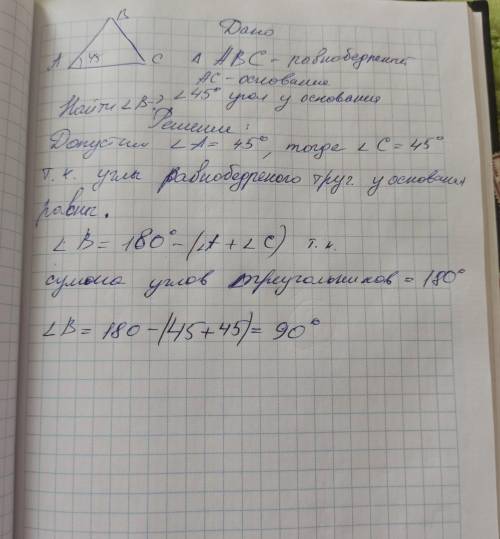 B
Дано
A 45 C
Δ ABC - равнобедренный
AC - основание
Найти ∠B-? ∠45° угол у основания
Решение:
Допустим ∠A= 45°, тогда ∠C=45°
т.к. углы равнобедреного труг. у основания
равны.
∠B=180°-(∠A+∠C) т.к.
сумма углов треугольников = 180°
∠B= 180-(45+45)= 90°